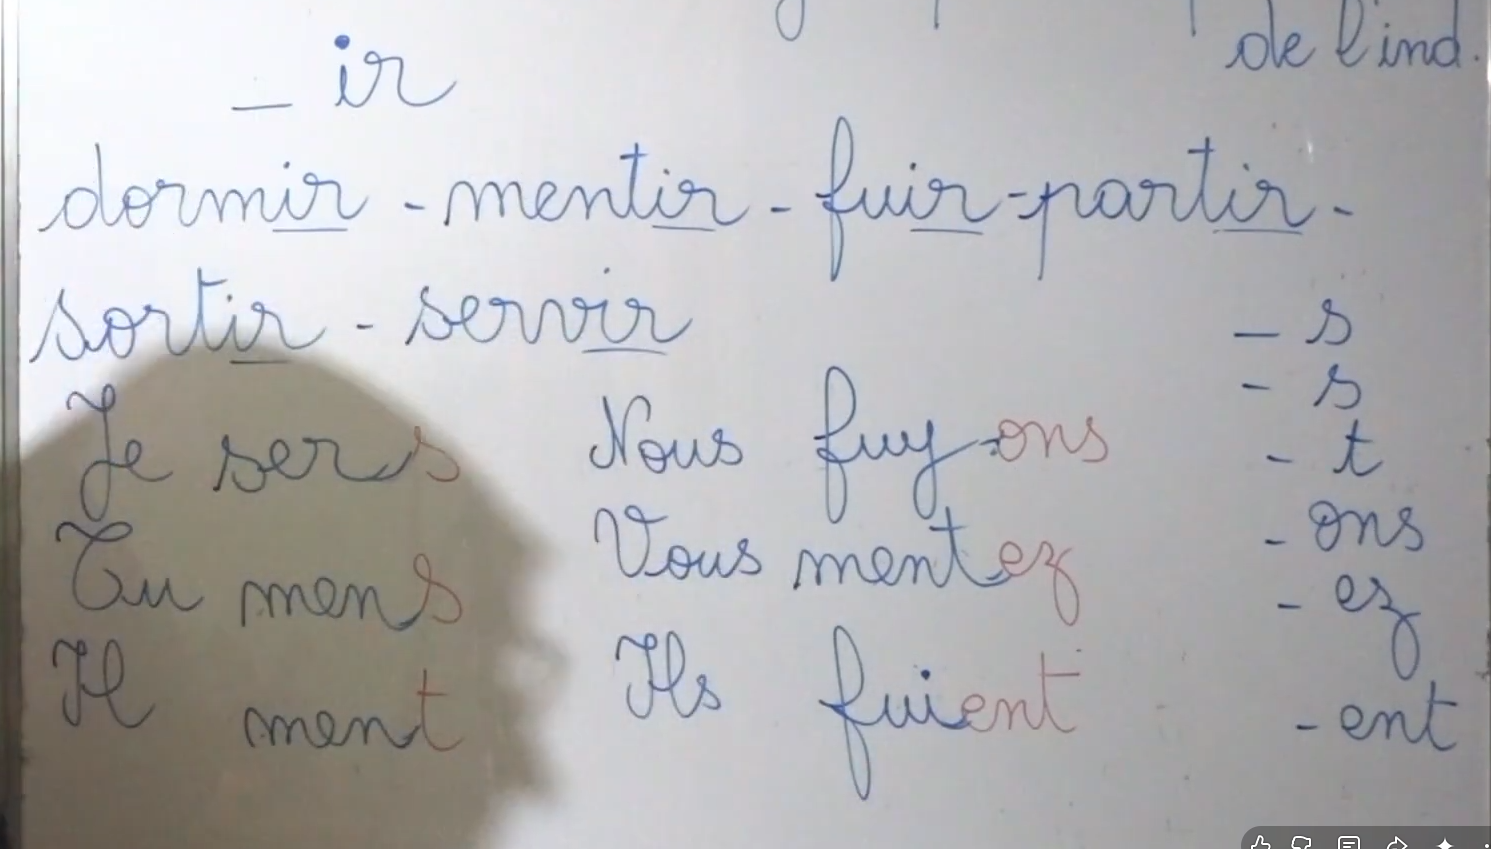 de l'ind.
_ ir
dormir - mentir - fuir - partir -
sortir - servir
- s
- s
Je sers Nous fuyons - t
- ons
Tu mens Vous mentez - ez
Il ment Ils fuient - ent